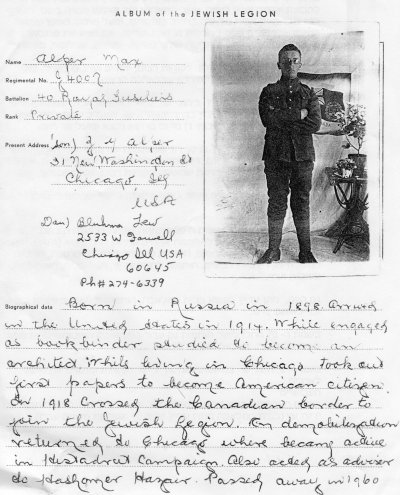 ALBUM of the JEWISH LEGION
Name Alper Max
Regimental No. J 4007
Battalion 40 Royal Fusiliers
Rank Private
Present Address (Son) J Alper
31 New Washington St
Chicago, Ill
USA
Dau) Bluhma Lew
2533 W Farwell
Chicago Ill USA
60645
Ph# 274-6339
Biographical data Born in Russia in 1898 Arrived
in the United States in 1914. While engaged
as bookbinder studied to become an
architect. While living in Chicago Took out
first papers to become American citizen.
In 1918 Crossed the Canadian border to
join the Jewish Legion. On demobilization
returned to Chicago where became active
in Histadrut Campaign. Also acted as adviser
to Hashomer Hazair. Passed away in 1960